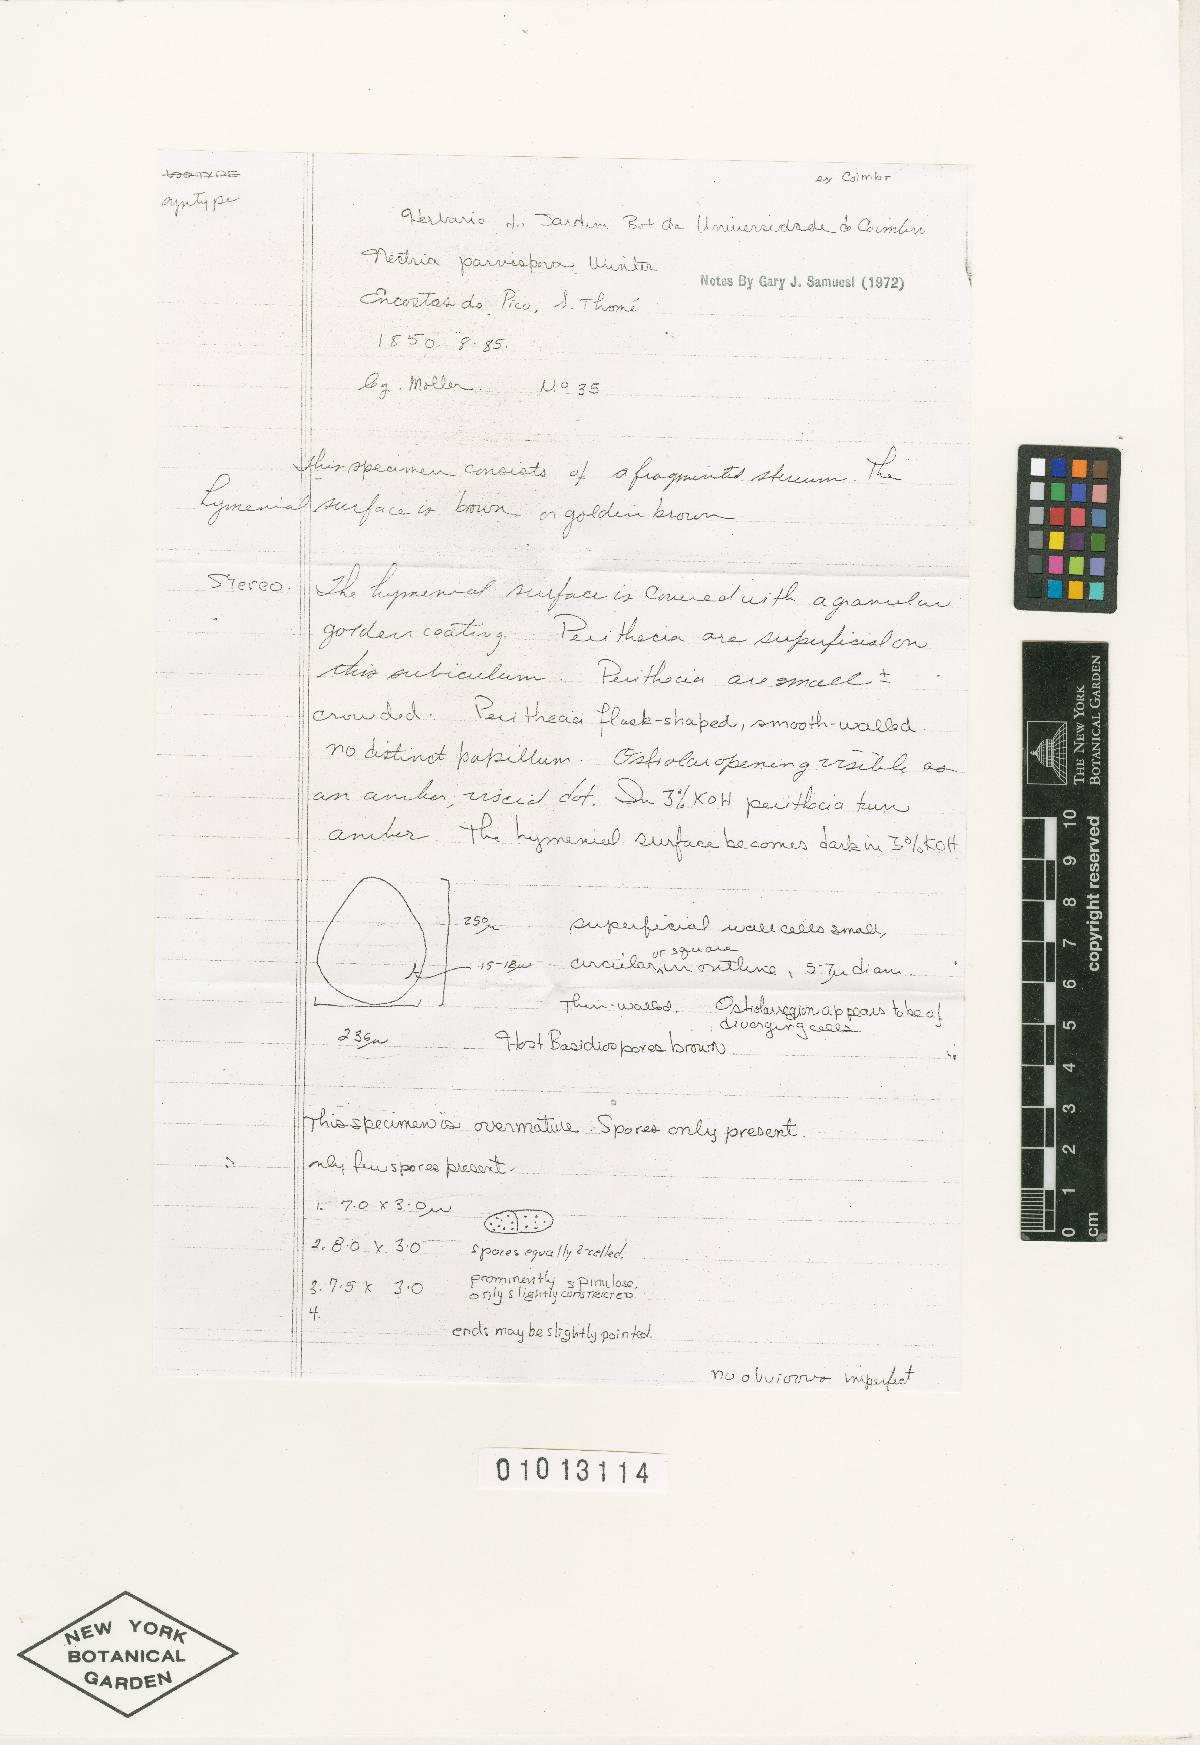 ex Coimbr
syntype
Herbario do Jardim Bot da Universidade de Coimbra
Nectria parvispora Winter
Notes By Gary J. Samuesl (1972)
Encostas do Pico, S. Thomé
1850 8.85.
leg. Moller No 35
This specimen consists of a fragmented stereum. The
hymenial surface is brown or golden brown
Stereo. The hymenial surface is covered with a granular
golden coating. Perithecia are superficial on
this subiculum. Perithecia are small ±
crowded. Perithecia flask-shaped, smooth-walled.
no distinct papillum. Ostiolar opening visible as
an amber, viscid dot. In 3% KOH perithecia turn
amber. The hymenial surface becomes dark in 3% KOH
250µ superficial wall cells small,
or square
15-18µ circular in outline, 5-7µ diam.
Thin-walled. Ostiolar region appears to be of
diverging cells
236µ Host Basidiospores brown
This specimen is overmature. Spores only present.
only few spores present.
1. 7.0 x 3.0µ
2. 8.0 x 3.0 spores equally 2-celled.
3. 7.5 x 3.0 prominently spinulose.
only slightly constricted
4.
ends may be slightly pointed.
no obvious imperfect
01013114
NEW YORK
BOTANICAL
GARDEN
THE NEW YORK
BOTANICAL GARDEN
0 1 2 3 4 5 6 7 8 9 10
cm copyright reserved